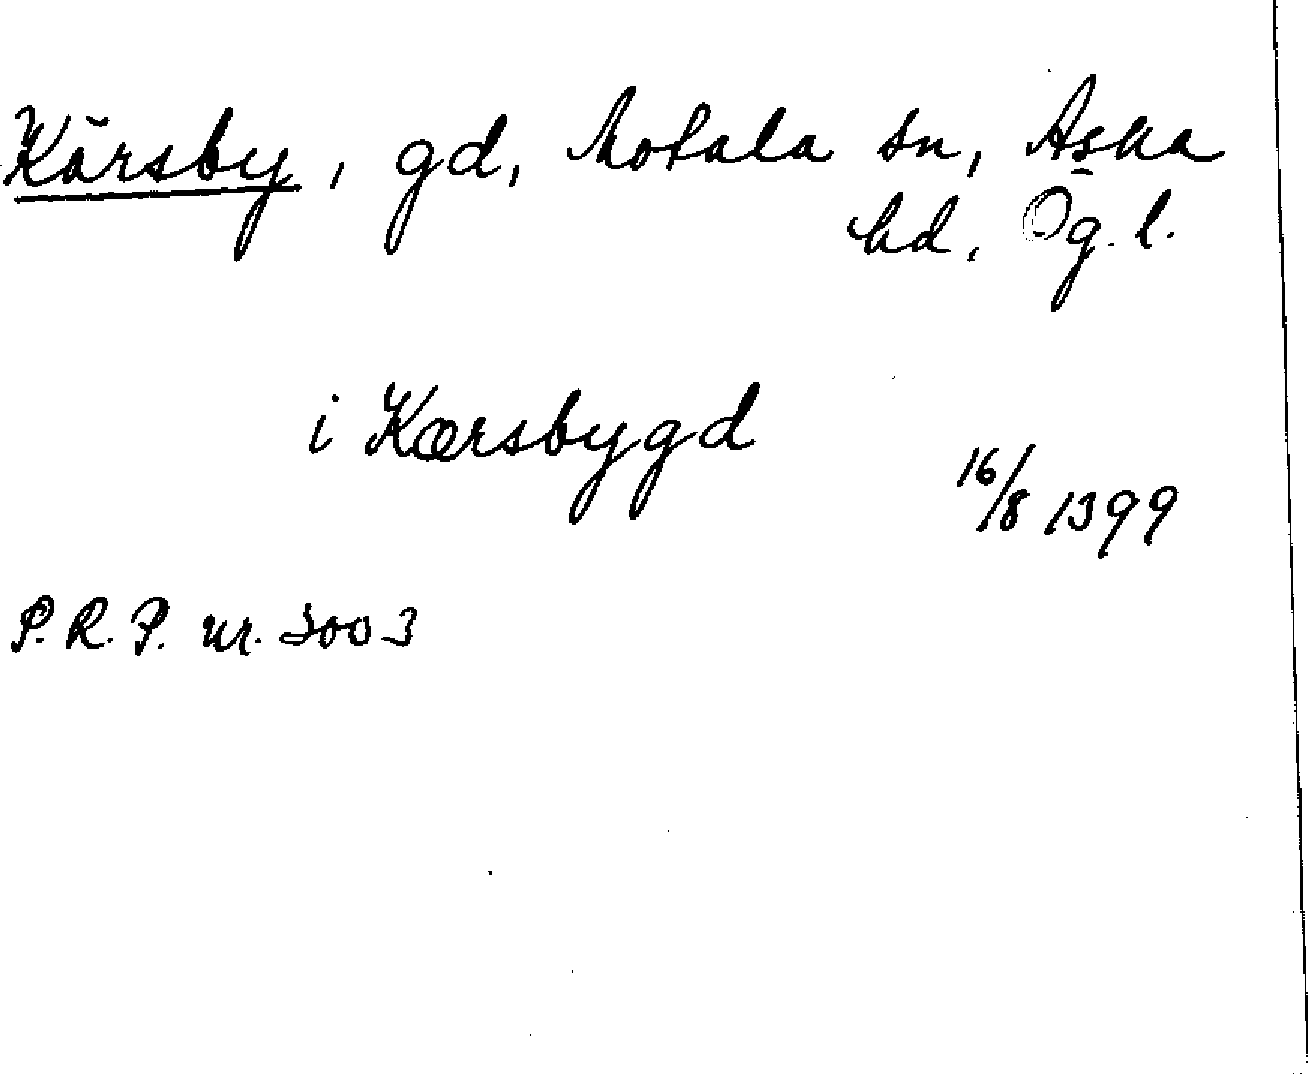 Kärsby, gd, Motala sn, Aska
hd, Ög. l.
i Kærsbygd
16/8 1399
P. R. P. nr. 3003